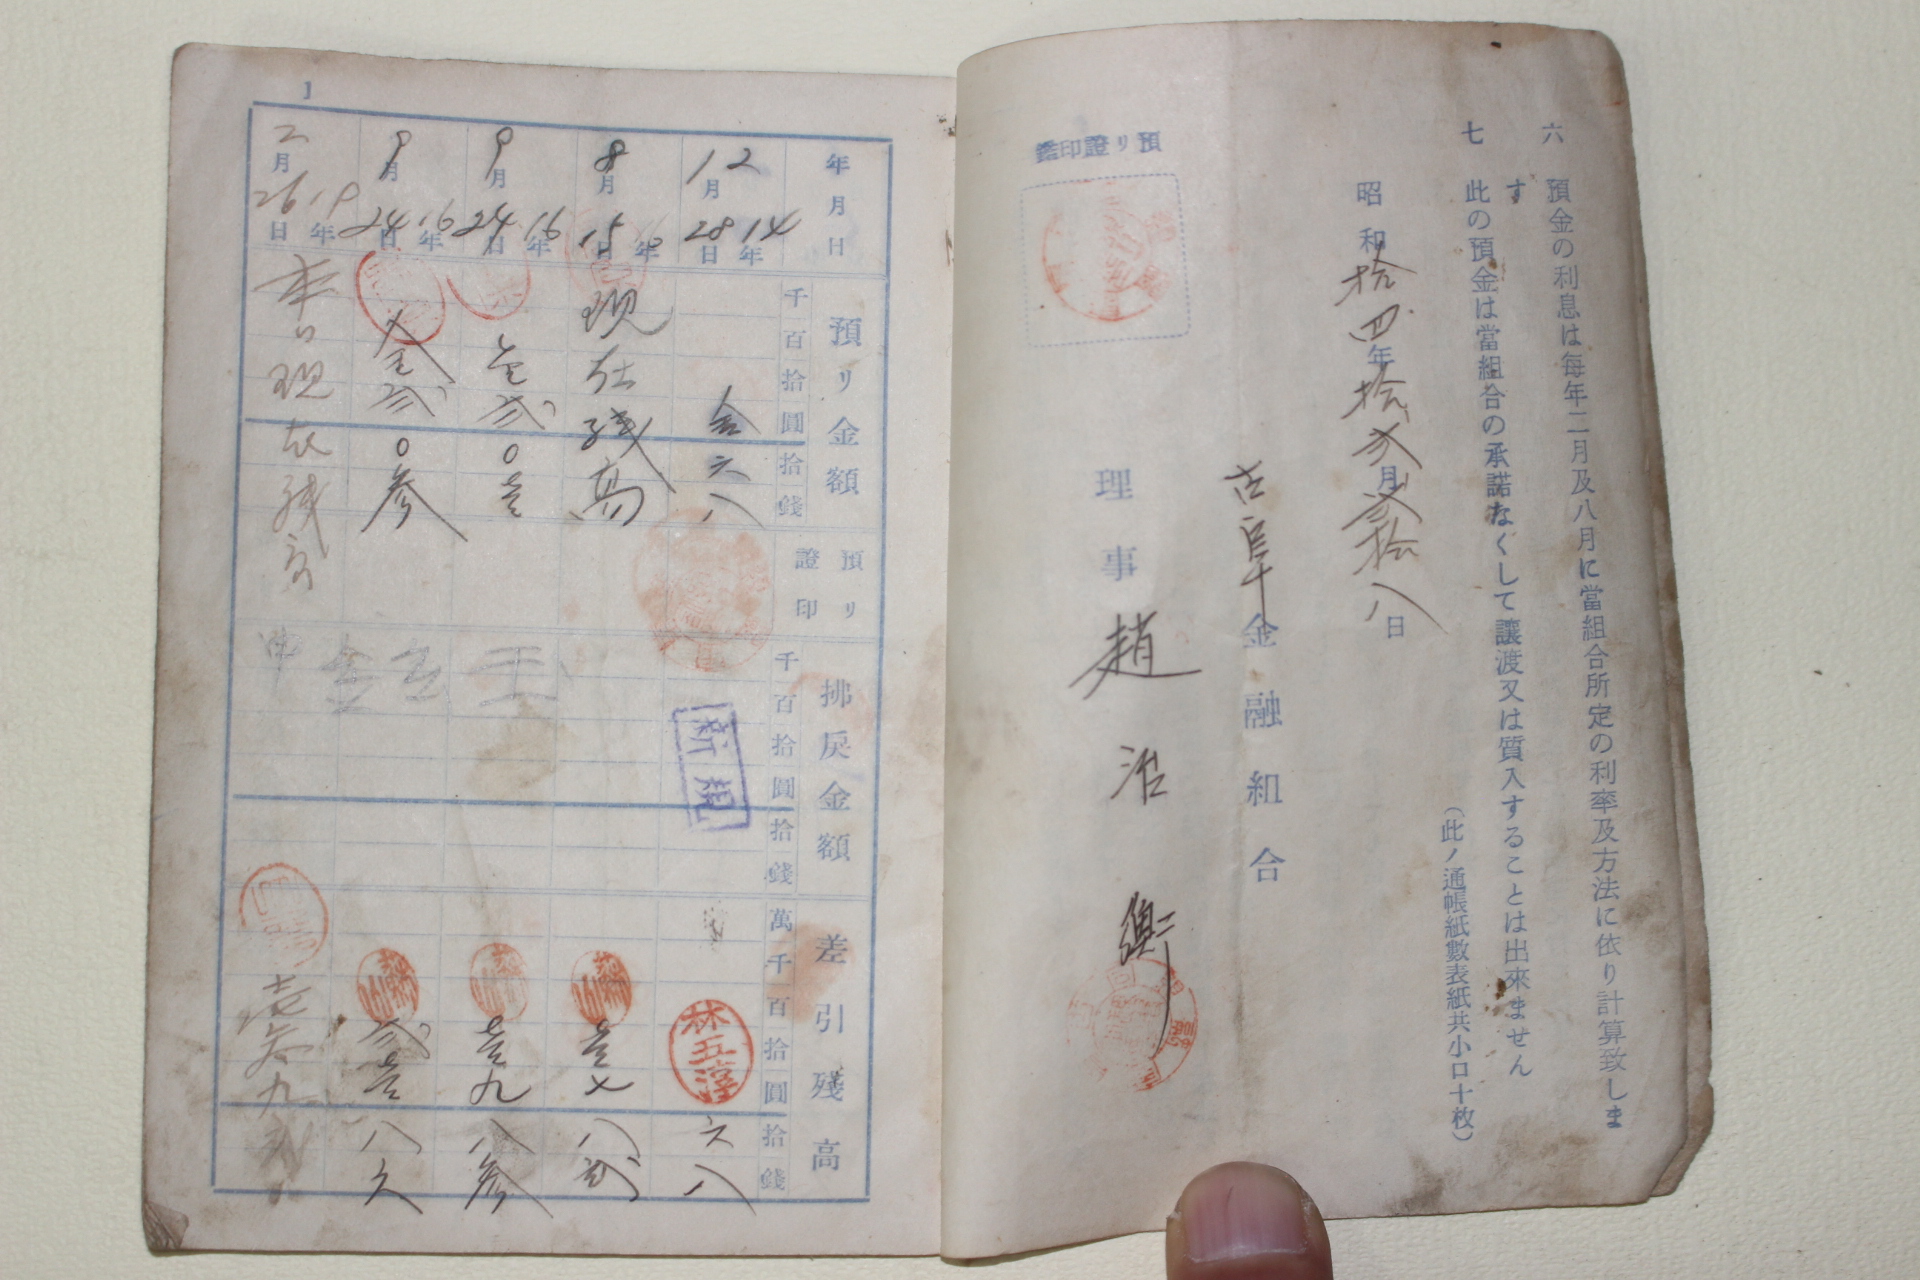 六 預金の利息は每年二月及八月に當組合所定の利率及方法に依り計算致しま
す
七 此の預金は當組合の承諾なくして讓渡又は質入することは出來ません
(此ノ通帳紙數表紙共小口十枚)
昭和拾四年拾弍月弍拾八日
古阜金融組合
理事 趙治衡
預リ證印鑑
1
年月日 預リ金額 預リ證印 拂戾金額 差引殘高
千百拾圓拾錢
千百拾圓拾錢
萬千百拾圓拾錢
12月28日14年 金六八 新規 林五淳 六八
8月15日16年 現在殘高 壱七八弍
9月24日16年 壱弍0壱 壱九八参
9月24日16年 壱弍0参 弍壱八
2月26日19年 本日現在残高